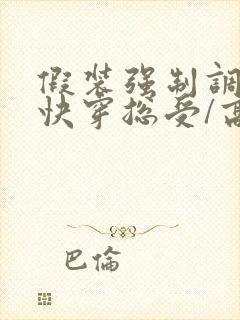 假装强制調
快穿总受/高
巴倫